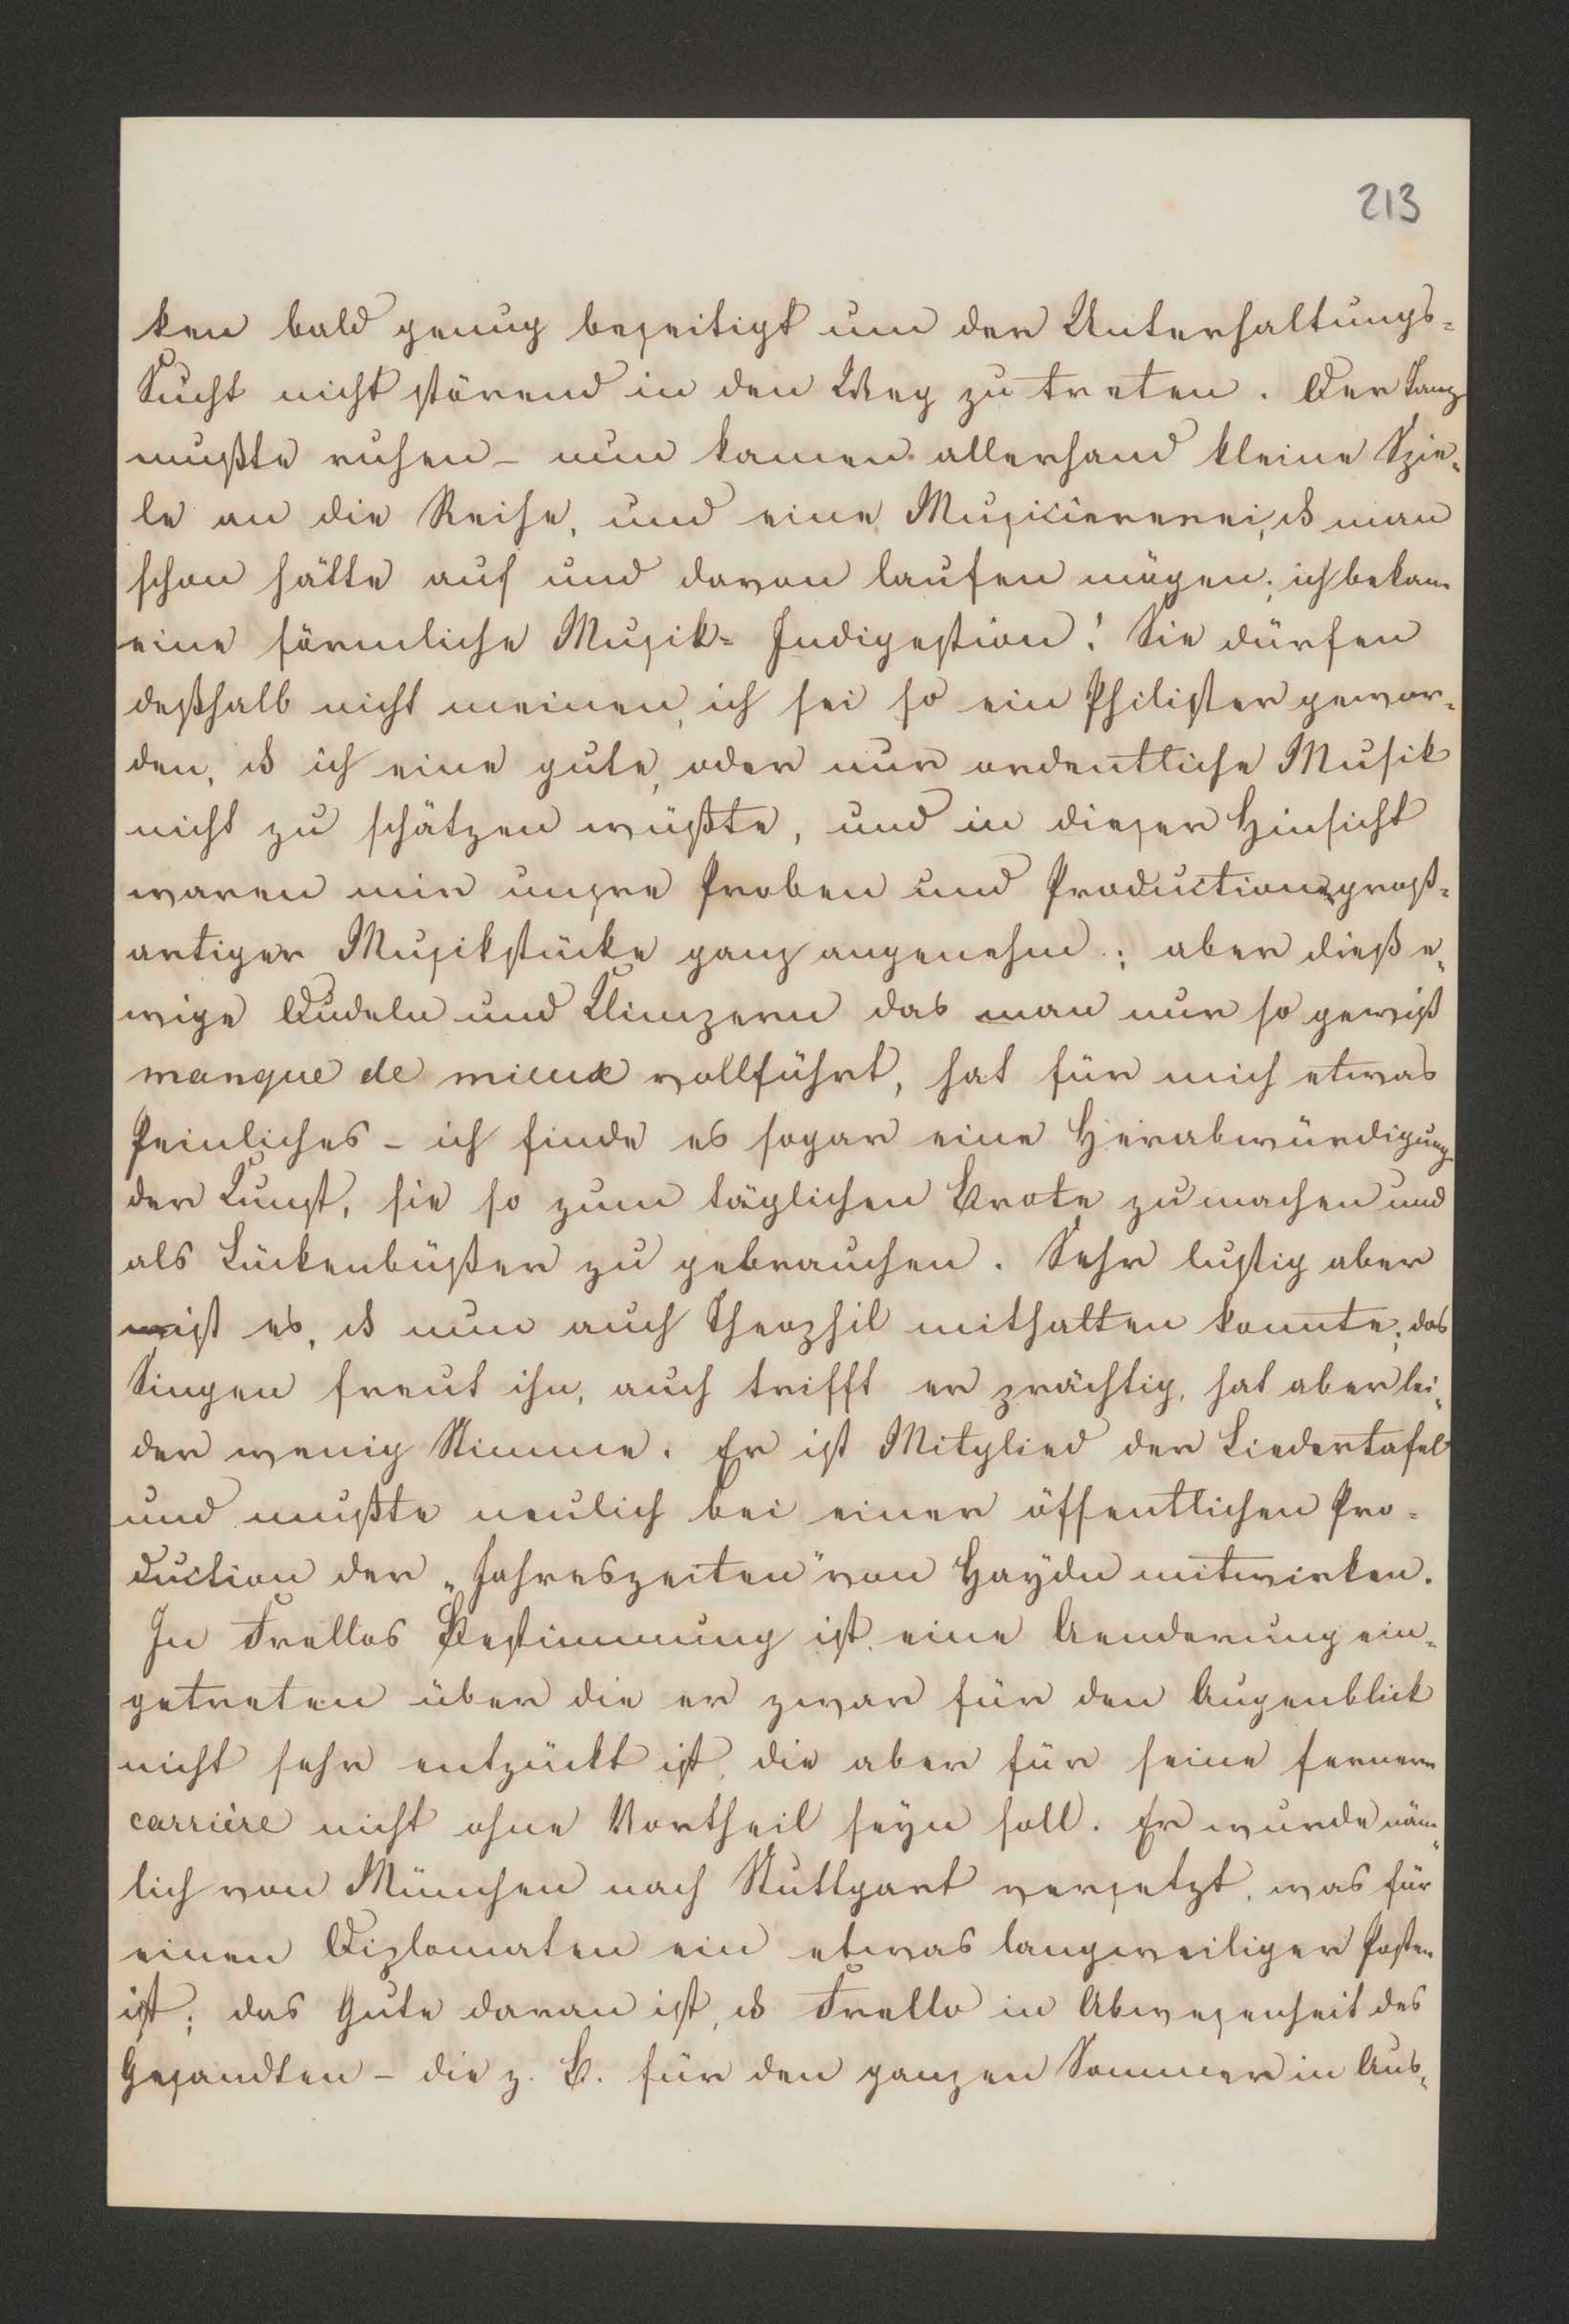 213
ken bald genug beseitigt um der Unterhaltungs-
Sucht nicht störend in den Weg zu treten. Der Tanz
mußte ruhen – nun kamen allerhand kleine Spie-
le an die Reihe, und eine Musiciererei, ds man
schon hätte auf und davon laufen mögen; ich bekam
eine förmliche Musik-Indigestion! Sie dürfen
deßhalb nicht meinen, ich sei so ein Philister gewor-
den, ds ich eine gute, oder nur ordentliche Musik
nicht zu schätzen wüßte, und in dieser Hinsicht
waren mir unsre Proben und Productionen groß-
artiger Musikstücke ganz angenehm; aber dieß e-
wige Dudeln und Klimpern das man nur so gewiß
manque de mieux vollführt, hat für mich etwas
Peinliches – ich finde es sogar eine Herabwürdigung
der Kunst, sie so zum täglichen Brote zu machen und
als Lückenbüßer zu gebrauchen. Sehr lustig aber
ist es, ds nun auch Theophil mithalten konnte; das
Singen freut ihn, auch trifft er prächtig, hat aber lei-
der wenig Stimme. Er ist Mitglied der Liedertafel
und mußte neulich bei einer öffentlichen Pro-
duction der „Jahreszeiten" von Haydn mitwirken.
In Trellos Bestimmung ist eine Aenderung ein-
getreten über die er zwar für den Augenblick
nicht sehr entzückt ist, die aber für seine fernere
carrière nicht ohne Vortheil seyn soll. Er wurde näm-
lich von München nach Stuttgart versetzt, was für
einen Diplomaten ein etwas langweiliger Posten
ist; das Gute daran ist, ds Trello in Abwesenheit des
Gesandten – die z. B. für den ganzen Sommer in Aus-